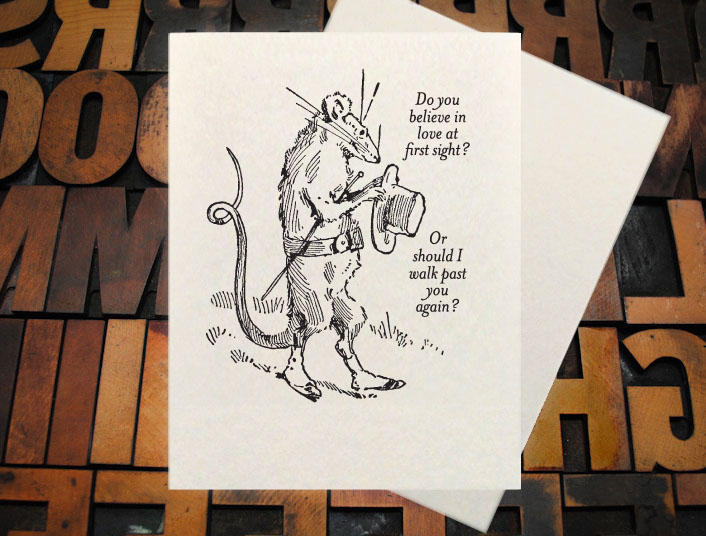 Do you
believe in
love at
first sight?
Or
should I
walk past
you
again?